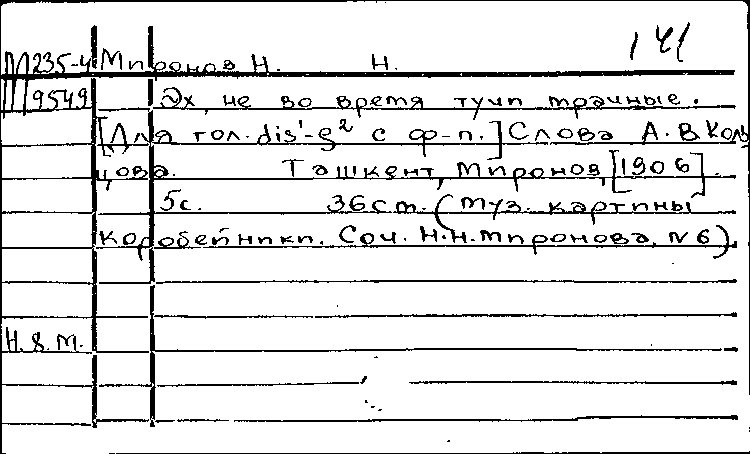 141
М 235-4 Миронов Н. Н.
9549 Эх, не во время тучи мрачные.
[Для гол. dis¹-g² с ф-п.] Слова А. В Коль
цова. Ташкент, Миронов, [1906].
5с. 36ст. (Муз. картины
Коробейники. Соч. Н.Н.Миронова, N 6).
Н. 8. М.